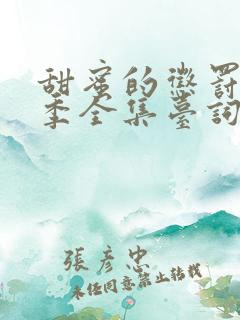 甜蜜的懲罰
季全集臺詞
張彥忠
未經同意禁止轉載